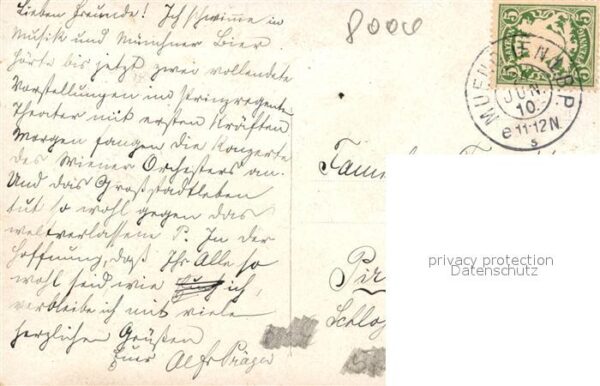 Lieben Freunde! Ich schwimme in
Musik und Münchner Bier
hörte bis jetzt zwei vollendete
Vorstellungen im Prinzregenten
Theater mit ersten Kräften
Morgen fangen die Konzerte
des Wiener Orchesters an.
Und das Großstadtleben
tut so wohl gegen das
weltverlassene P. In der
Hoffnung, daß Ihr Alle so
wohl seid wie ich,
verbleibe ich mit vielen
herzlichen Grüßen
Euer
8006
5 5
JUN.
10.
11-12N.
B.P.
privacy protection
Datenschutz